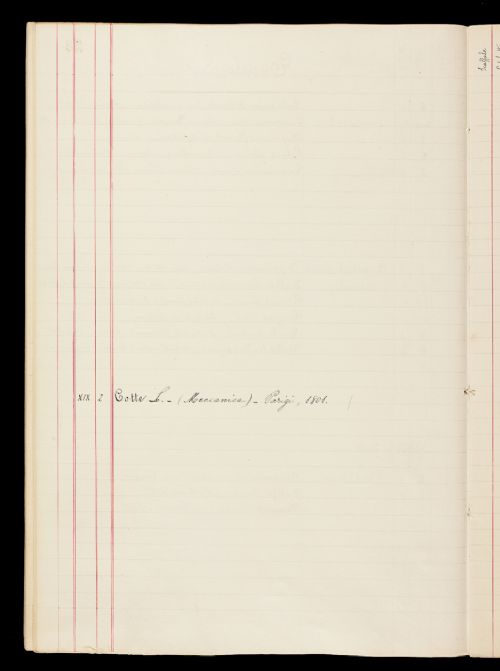 XIX 2 Cotte L. - (Meccanica) - Parigi, 1801.
Scaffale